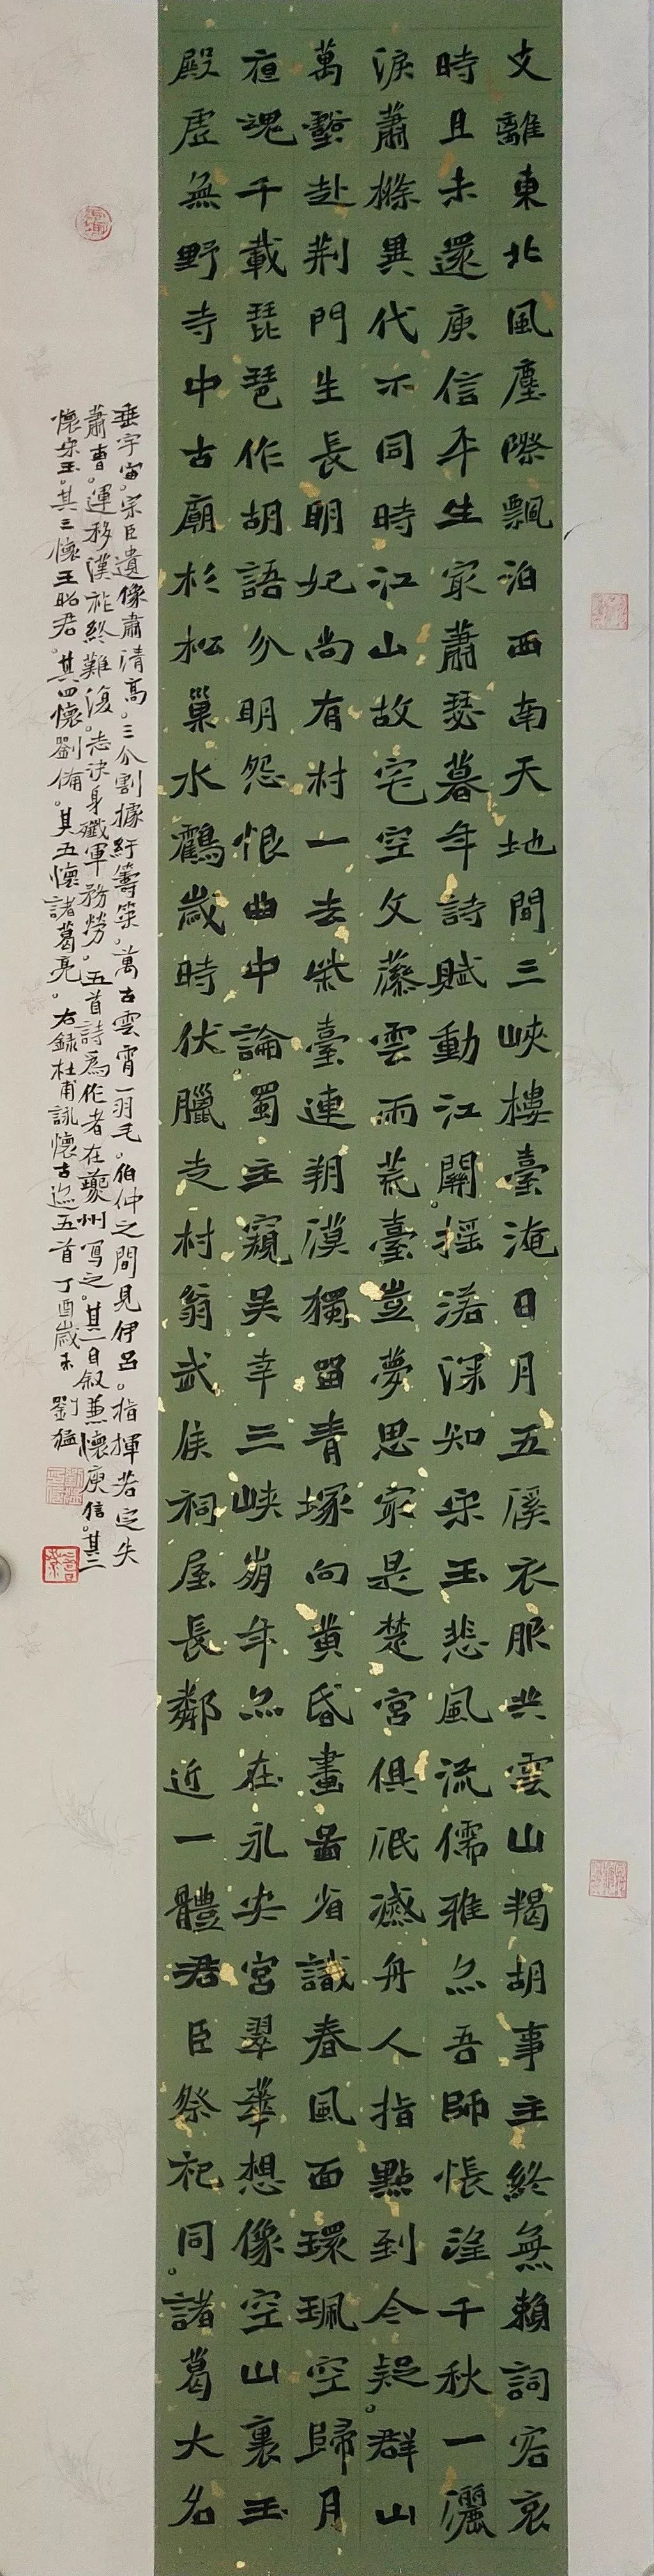 支離東北風塵際飄泊西南天地間三峽樓臺淹日月五溪衣服共雲山羯胡事主終無賴詞客哀
時且未還庾信平生冣蕭瑟暮年詩賦動江關。摇落深知宋玉悲風流儒雅亦吾師悵望千秋一灑
淚蕭條異代不同時江山故宅空文藻雲雨荒臺豈夢思冣是楚宮俱泯滅舟人指點到今疑。群山
萬壑赴荆門生長明妃尚有村一去紫臺連朔漠獨留青塚向黃昏畫圖省識春風面環珮空歸月
夜魂千載琵琶作胡語分明怨恨曲中論。蜀主窺吴幸三峽崩年亦在永安宮翠華想像空山裏玉
殿虛無野寺中古廟杉松巢水鶴歲時伏臘走村翁武侯祠屋長鄰近一體君臣祭祀同。諸葛大名
垂宇宙。宗臣遺像肅清高。三分割據紆籌策。萬古雲霄一羽毛。伯仲之間見伊吕。指揮若定失
蕭曹。運移漢祚終難復。志決身殲軍務勞。五首詩爲作者在夔州寫之。其一自叙兼懷庾信。其二
懷宋玉。其三懷王昭君。其四懷劉備。其五懷諸葛亮。右録杜甫詠懷古迹五首丁酉歲末劉猛